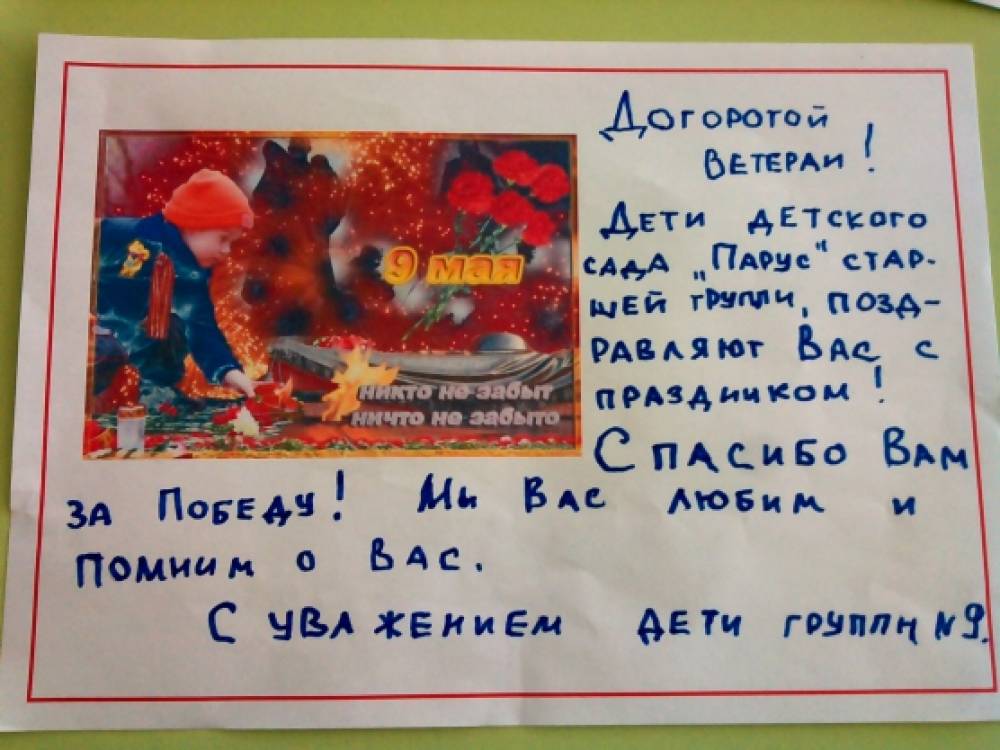 Догоротой
Ветеран!
Дети детского
сада „Парус“ стар-
шей группы, позд-
равляют Вас с
праздником!
Спасибо Вам
за Победу! Мы Вас любим и
помним о Вас.
С уважением дети группы №9.
9 мая
никто не забыт
ничто не забыто